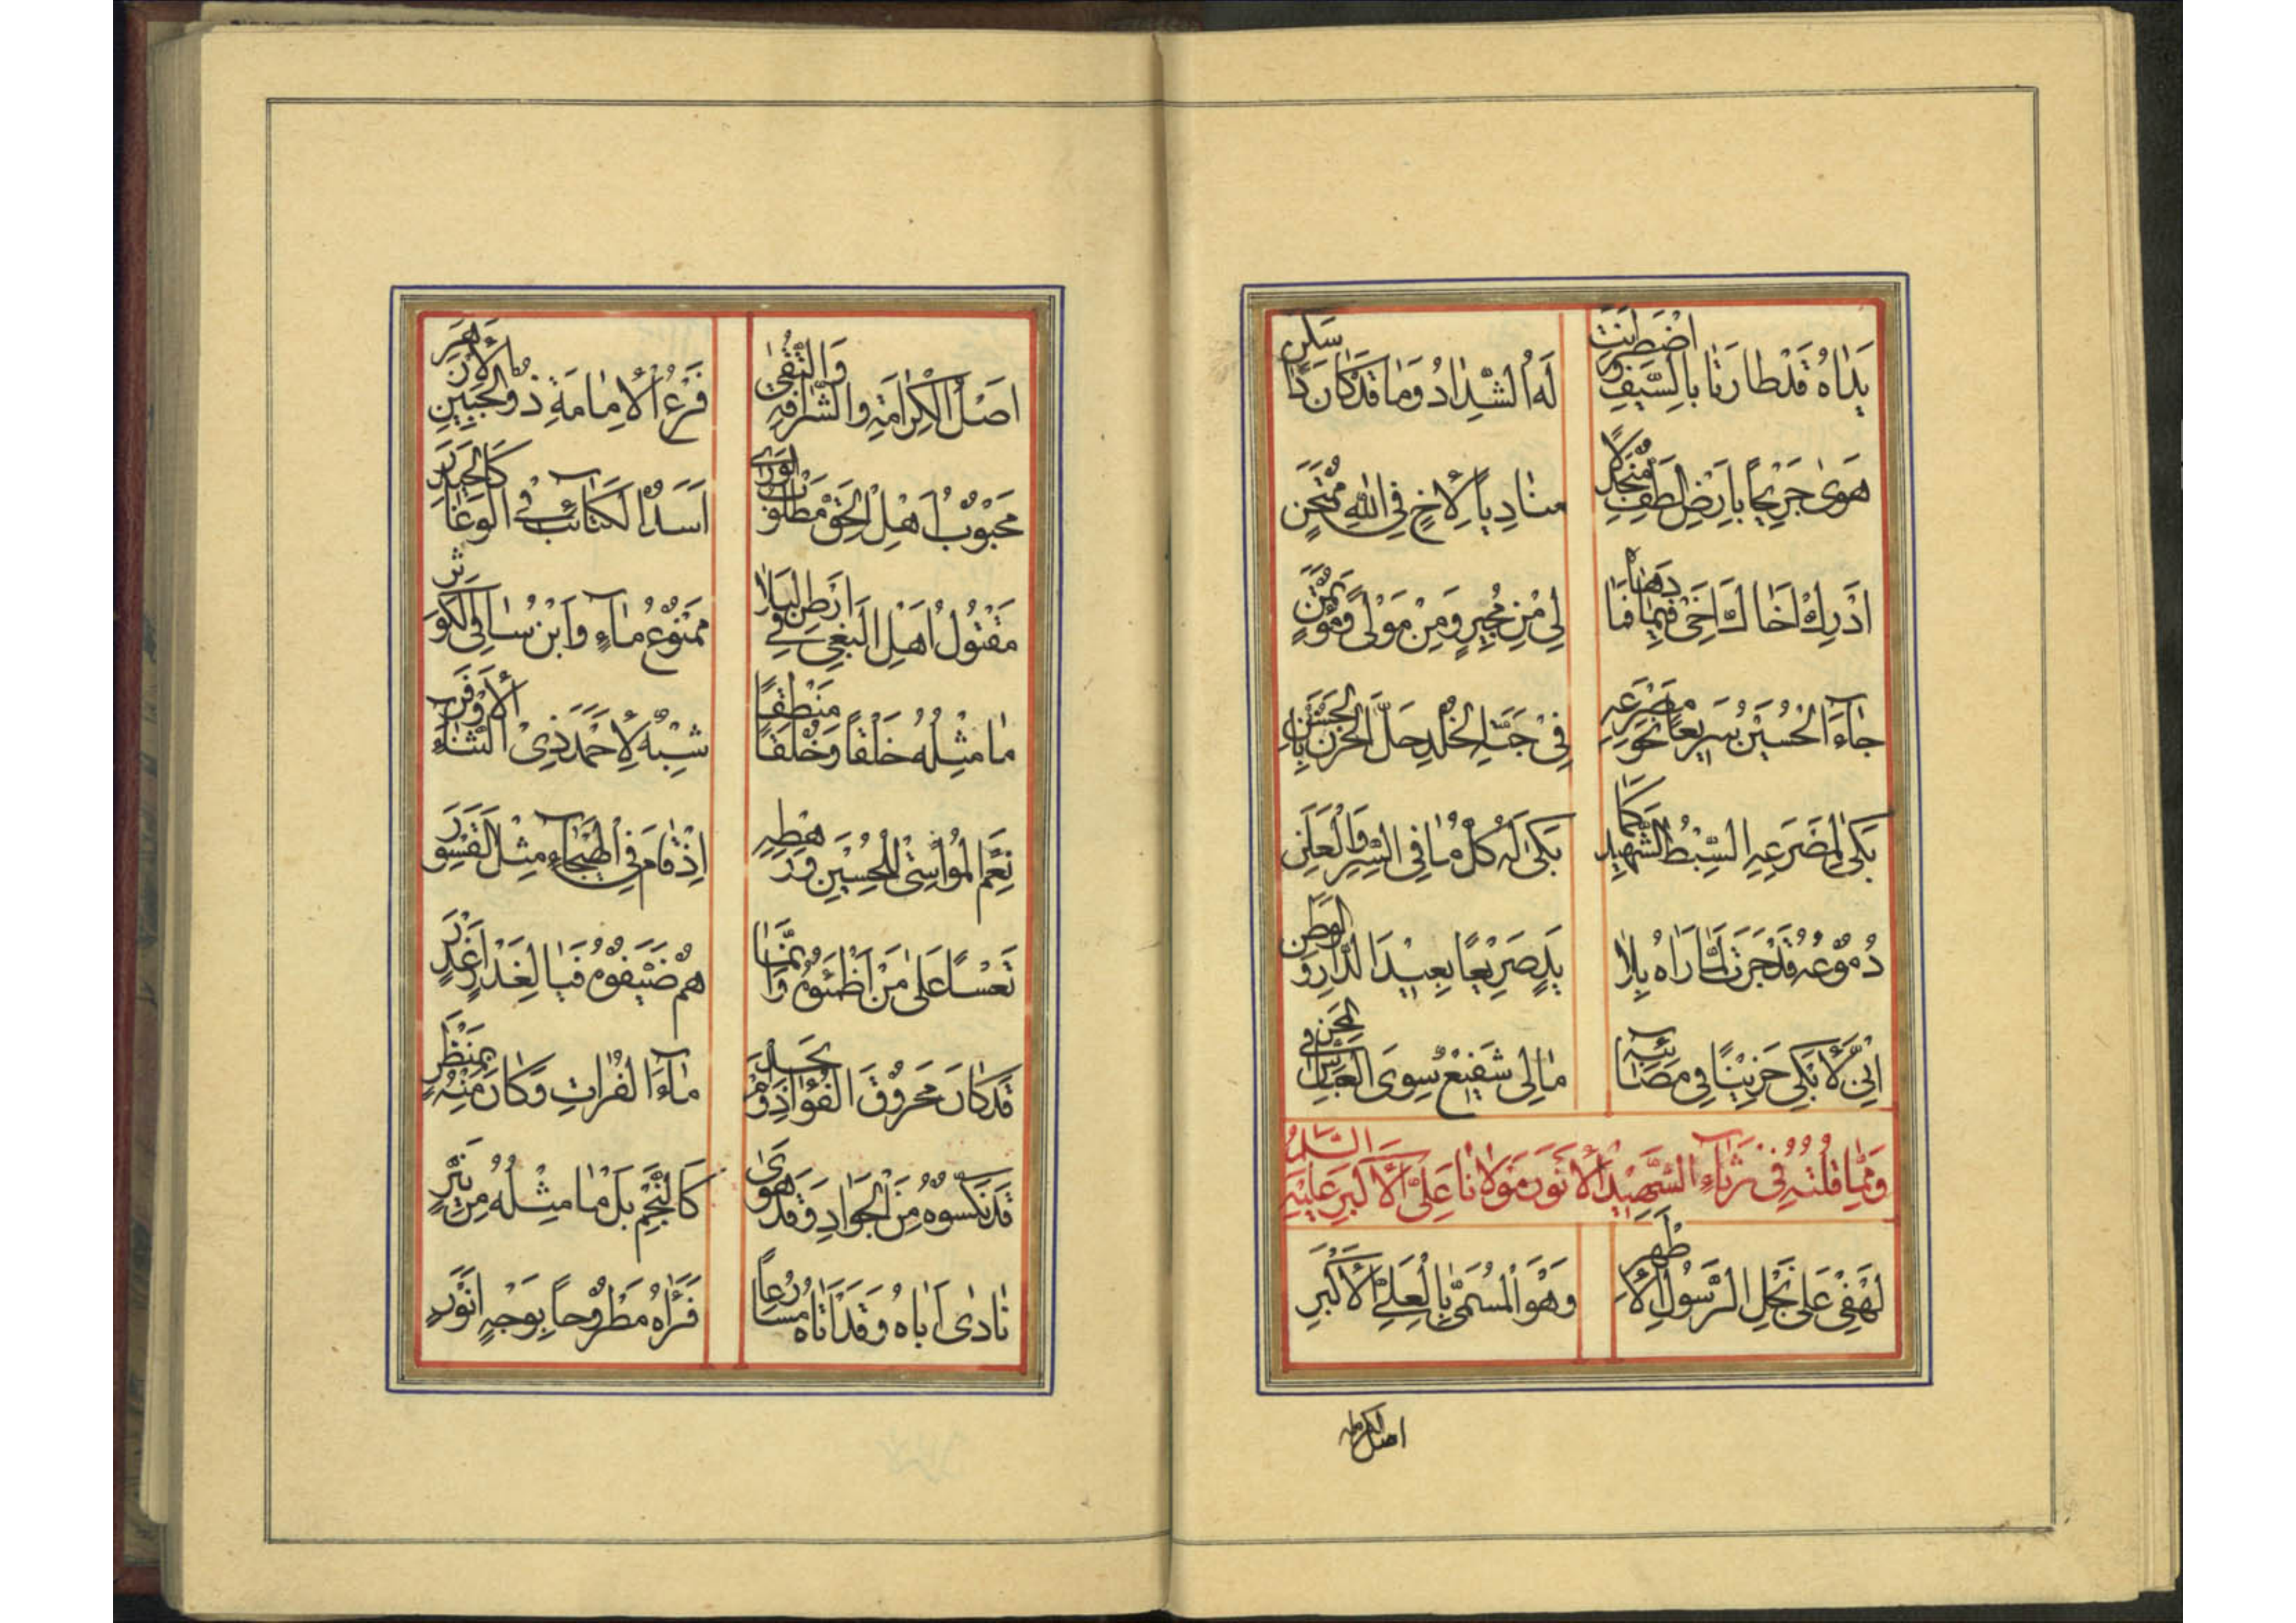 يَدَاهُ قَدْ طَارَتَا بِالسَّيْفِ وَاضْطَرَبَتْ
لَهُ الشِّدَادُ وَمَا قَدْ كَانَ ذَا سَكَنٍ
هَوىٰ جَرِيحًا بِأَرْضِ الطَّفِّ مُنْجَدِلًا
مُنَادِيًا لِأَخٍ فِي اللّٰهِ مُمْتَحَنٍ
اَدْرِكْ اَخَاكَ اَخِي فِيمَا دَهَاهُ فَمَا
لِي مِنْ مُجِيرٍ وَمِنْ مَوْلًى وَمُؤْتَمَنٍ
جَاءَ الْحُسَيْنُ سَرِيعًا نَحْوَ مَصْرَعِهِ
فِي جَنَّةِ الْخُلْدِ حَلَّ الْحُزْنُ بِالْحَسَنِ
بَكىٰ لِمَصْرَعِهِ السِّبْطُ الشَّهِيدُ كَمَا
بَكىٰ لَهُ كُلُّ مَا فِي السِّرِّ وَالْعَلَنِ
دُمُوعُهُ قَدْ جَرَتْ لَمَّا رَاٰهُ بِلَا
يَدٍ صَرِيعًا بَعِيدَ الدَّارِ وَالْوَطَنِ
اِنِّي لَاَبْكِي حَزِينًا فِي مَصَائِبِهِ
مَا لِي شَفِيعٌ سِوَى الْعَبَّاسِ فِي الْمِحَنِ
وَمِمَّا قُلْتُهُ فِي رِثَاءِ الشَّهِيدِ الْاَنْوَرِ مَوْلَانَا عَلِيٍّ الْاَكْبَرِ عَلَيْهِ السَّلَامُ
لَهْفِي عَلىٰ نَجْلِ الرَّسُولِ الْاَطْهَرِ
وَهُوَ الْمُسَمّىٰ بِالْعَلِيِّ الْاَكْبَرِ
اصل الكرامة
اَصْلُ الْكَرَامَةِ وَالشَّرَافَةِ وَالتُّقىٰ
فَرْعُ الْاِمَامَةِ ذُو الْجَبِينِ الْاَزْهَرِ
مَحْبُوبُ اَهْلِ الْحَقِّ مَطْلُوبُ الْوَرىٰ
اَسَدُ الْكَتَائِبِ فِي الْوَغَا كَالْحَيْدَرِ
مَقْتُولُ اَهْلِ الْبَغْيِ فِي اَرْضِ الْبَلَا
مَمْنُوعُ مَاءٍ وَابْنُ سَاقِي الْكَوْثَرِ
مَا مِثْلُهُ خَلْقًا وَخُلْقًا مَنْطِقًا
شِبْهٌ لِاَحْمَدَ ذِي الثَّنَاءِ الْاَوْفَرِ
نِعْمَ الْمُوَاسِي لِلْحُسَيْنِ وَرَهْطِهِ
اِذْ قَامَ فِي الْهَيْجَاءِ مِثْلَ الْقَسْوَرِ
تَعْسًا عَلىٰ مَنْ اَظْمَئُوهُ وَاِنَّمَا
هُمْ ضَيَّفُوهُ فَيَا لِغَدْرٍ اَغْدَرِ
قَدْ كَانَ مَحْرُوقَ الْفُؤَادِ وَلَمْ يَجِدْ
مَاءَ الْفُرَاتِ وَكَانَ مِنْهُ بِمَنْظَرٍ
قَدْ نَكَّسُوهُ مِنَ الْجَوَادِ وَقَدْ هَوىٰ
كَالنَّجْمِ بَلْ مَا مِثْلُهُ مِنْ نَيِّرٍ
نَادىٰ اَبَاهُ وَقَدْ اَتَاهُ مُسَارِعًا
فَرَاٰهُ مَطْرُوحًا بِوَجْهٍ اَنْوَرِ